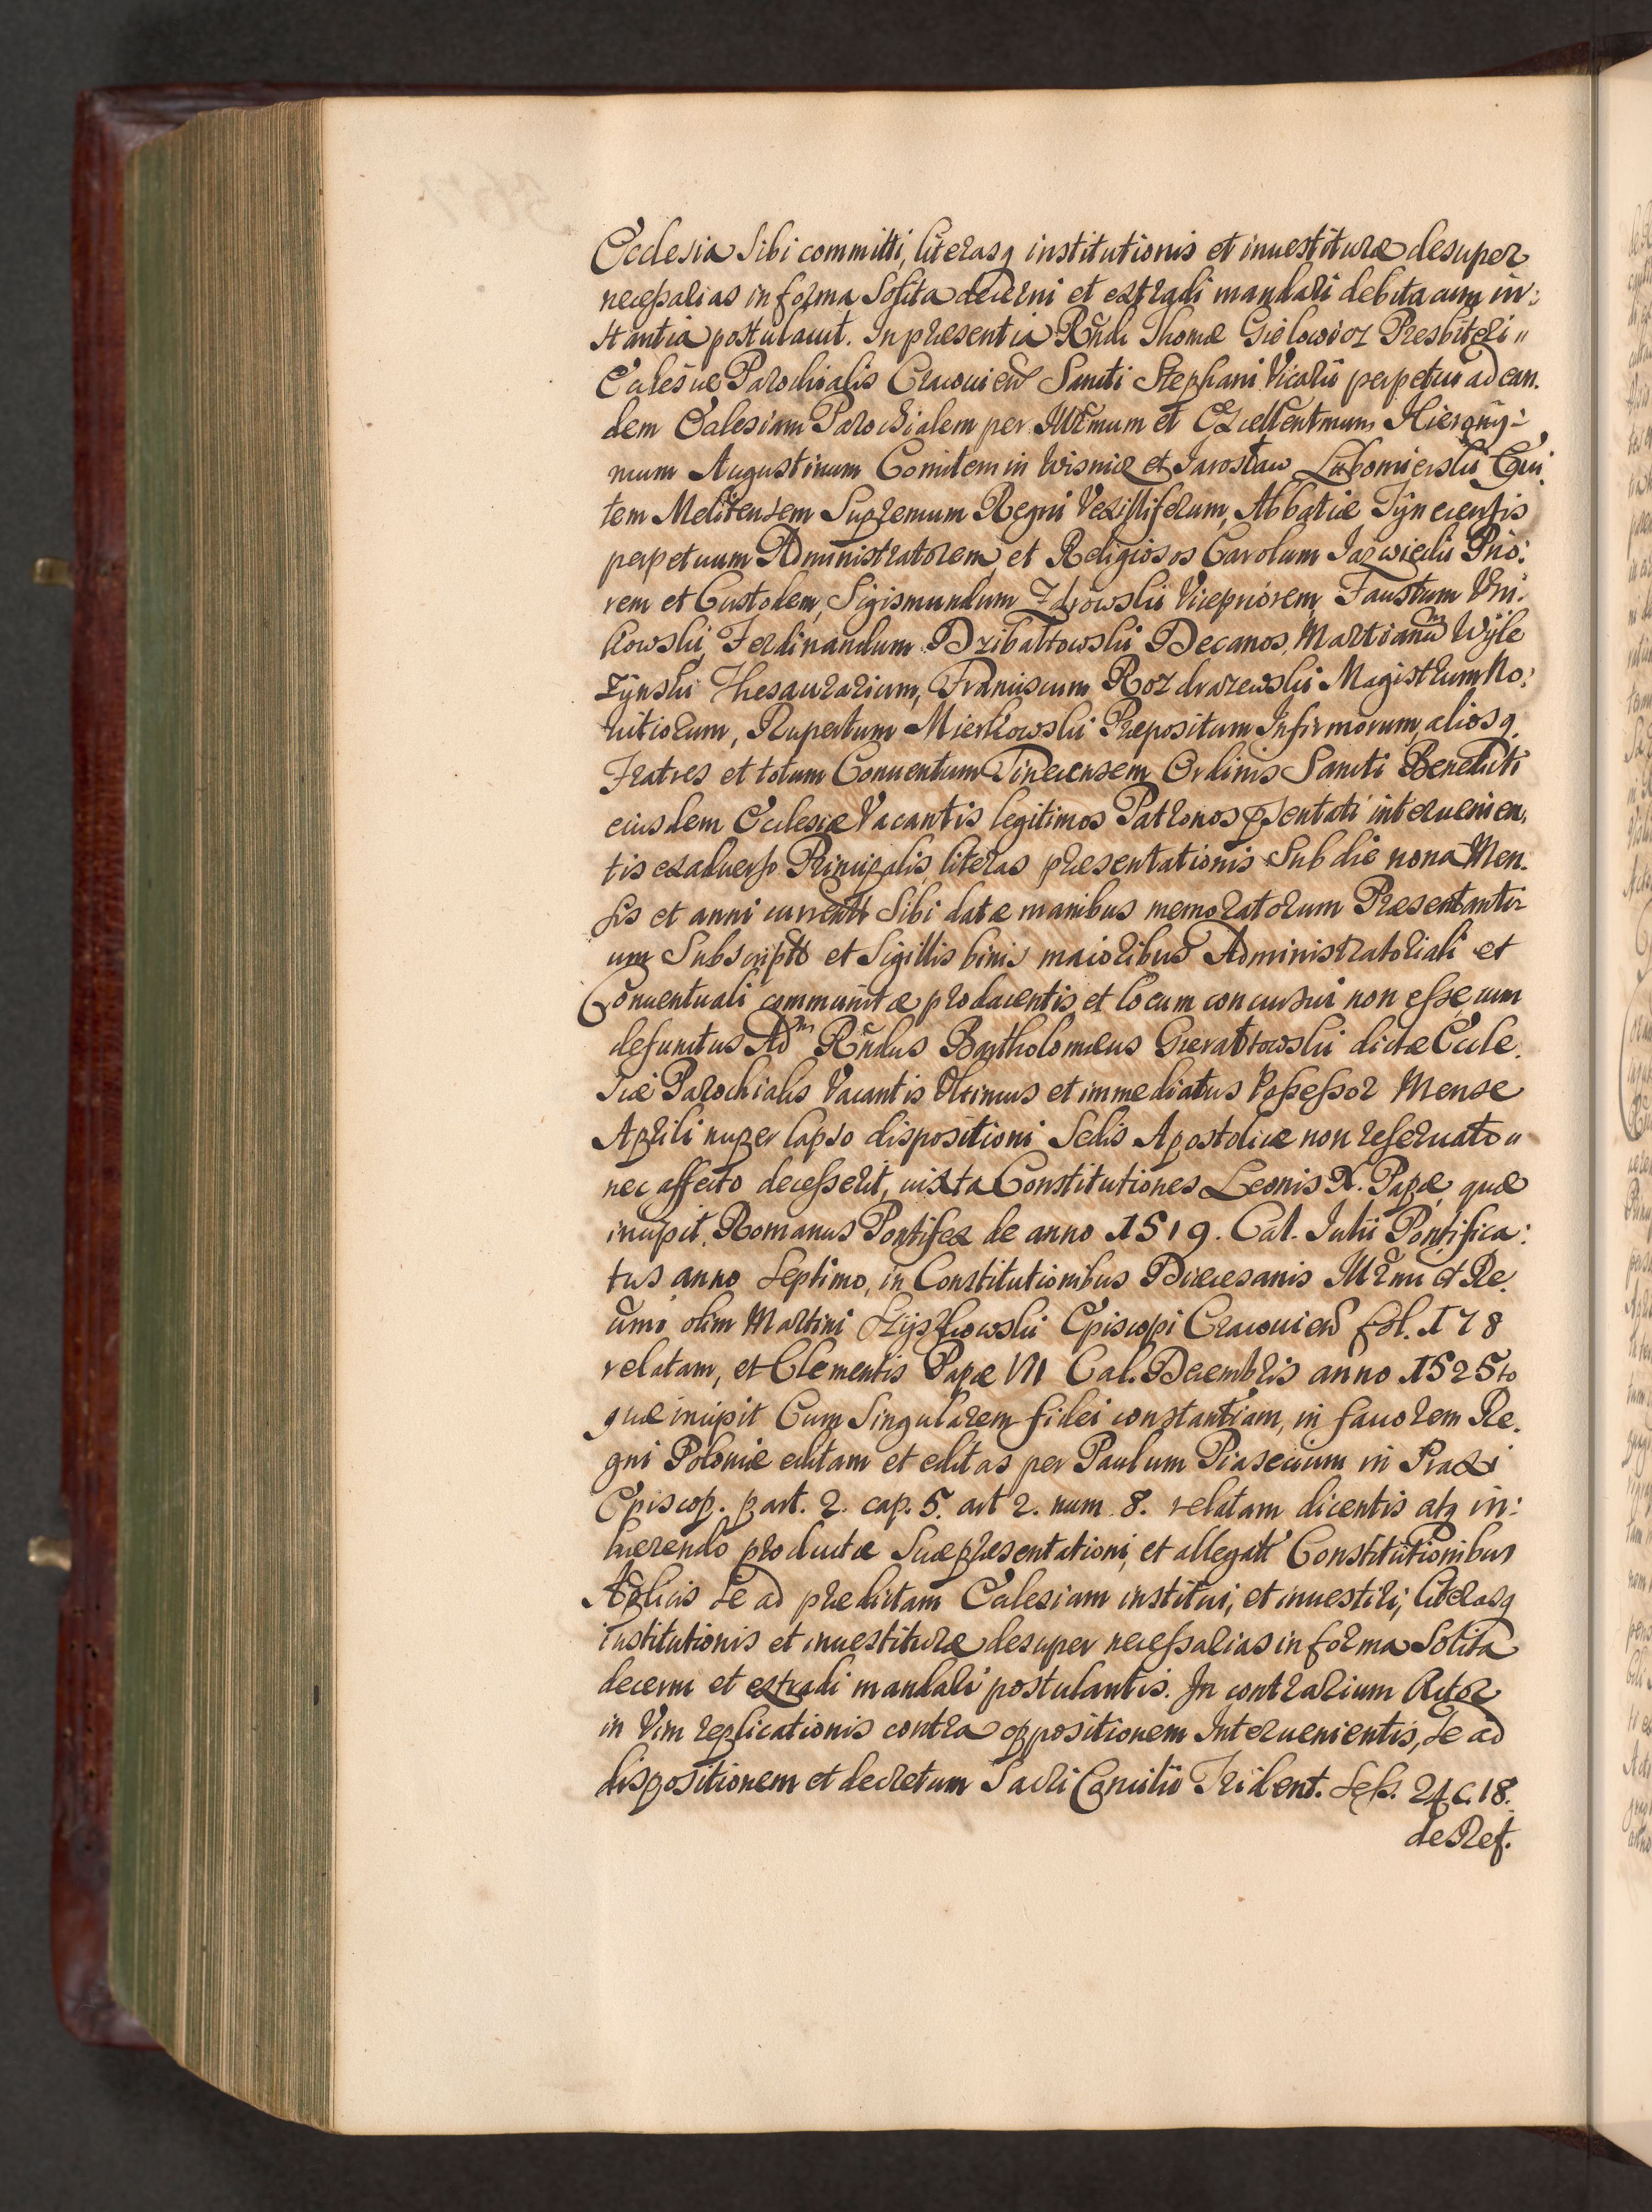 Ecclesia sibi committi, literasq institutionis et inuestituræ desuper
necessarias in forma solita decerni et extradi mandari debita cum in:
stantia postulauit. In præsentia Rndi Thomæ Gielowicz Presbiteri "
Ecclesiæ Parochialis Cracouien Sancti Stephani Vicarii perpetui ad ean.
dem Ecclesiam Parochialem per Illrmum et Excellentmum Hierony:
mum Augustinum Comitem in Wisnicz et Jarosław Lubomierski Equi.
tem Melitensem Supremum Regni Vexilliferum, Abbatiæ Tynecensis
perpetuum Administratorem et Religiosos Carolum Jazwiecki Prio:
rem et Custodem, Sigismundum Zdrowski Vicepriorem Faustum Vni:
kowski, Ferdinandum Dzibałtowski Decanos, Martianum Wyle
zynski Thesaurarium, Franciscum Rozdrazewski Magistrum No:
uitiorum, Rupertum Mierkowski Præpositum Infirmorum, aliosq
Fratres et totum Conuentum Tinecensem Ordinis Sancti Benedicti
eiusdem Ecclesiæ Vacantis legitimos Patronos psentati interuenien.
tis exaduerso Principalis literas præsentationis sub die nona Men.
sis et anni currentt sibi datæ manibus memoratorum Præsentanti-
um subscriptt et sigillis binis maioribus Administratoriali et
Conuentuali communitæ producentis et locum concursui non esse, cum
defunctus Adm Rndus Bartholomæus Gierałtowski dictæ Eccle.
siæ Parochialis Vacantis Vltimus et immediatus Possessor Mense
Aprili nuper lapso dispositioni Sedis Apostolicæ non reseruato "
nec affecto decesserit, iuxta Constitutiones Leonis X. Papæ quæ
incipit. Romanus Pontifex de anno 1519. Cal. Iulii Pontifica:
tus anno septimo, in Constitutionibus Diœcesanis Illrmi et Re.
umi olim Martini Szyszkowski Episcopi Cracouien fol. 178
relatam, et Clementis Papæ VII Cal. Decembris anno 1525to
quæ incipit Cum singularem fidei constantiam, in fauorem Re.
gni Poloniæ editam et editas per Paulum Piasecium in Praxi
Episcop. part. 2. cap. 5. art 2. num 8. relatam dicentis atq in:
hærendo productæ suæ præsentationi, et allegatt Constitutionibus
Aplicis se ad prædictam Ecclesiam institui, et inuestiri, literasq
institutionis et inuestituræ desuper necessarias in forma solita
decerni et extradi mandari postulantis. In contrarium Actor
in Vim replicationis contra oppositionem Interuenientis, se ad
dispositionem et decretum Sacri Concilii Trident. Sess. 24 c. 18.
de Ref.